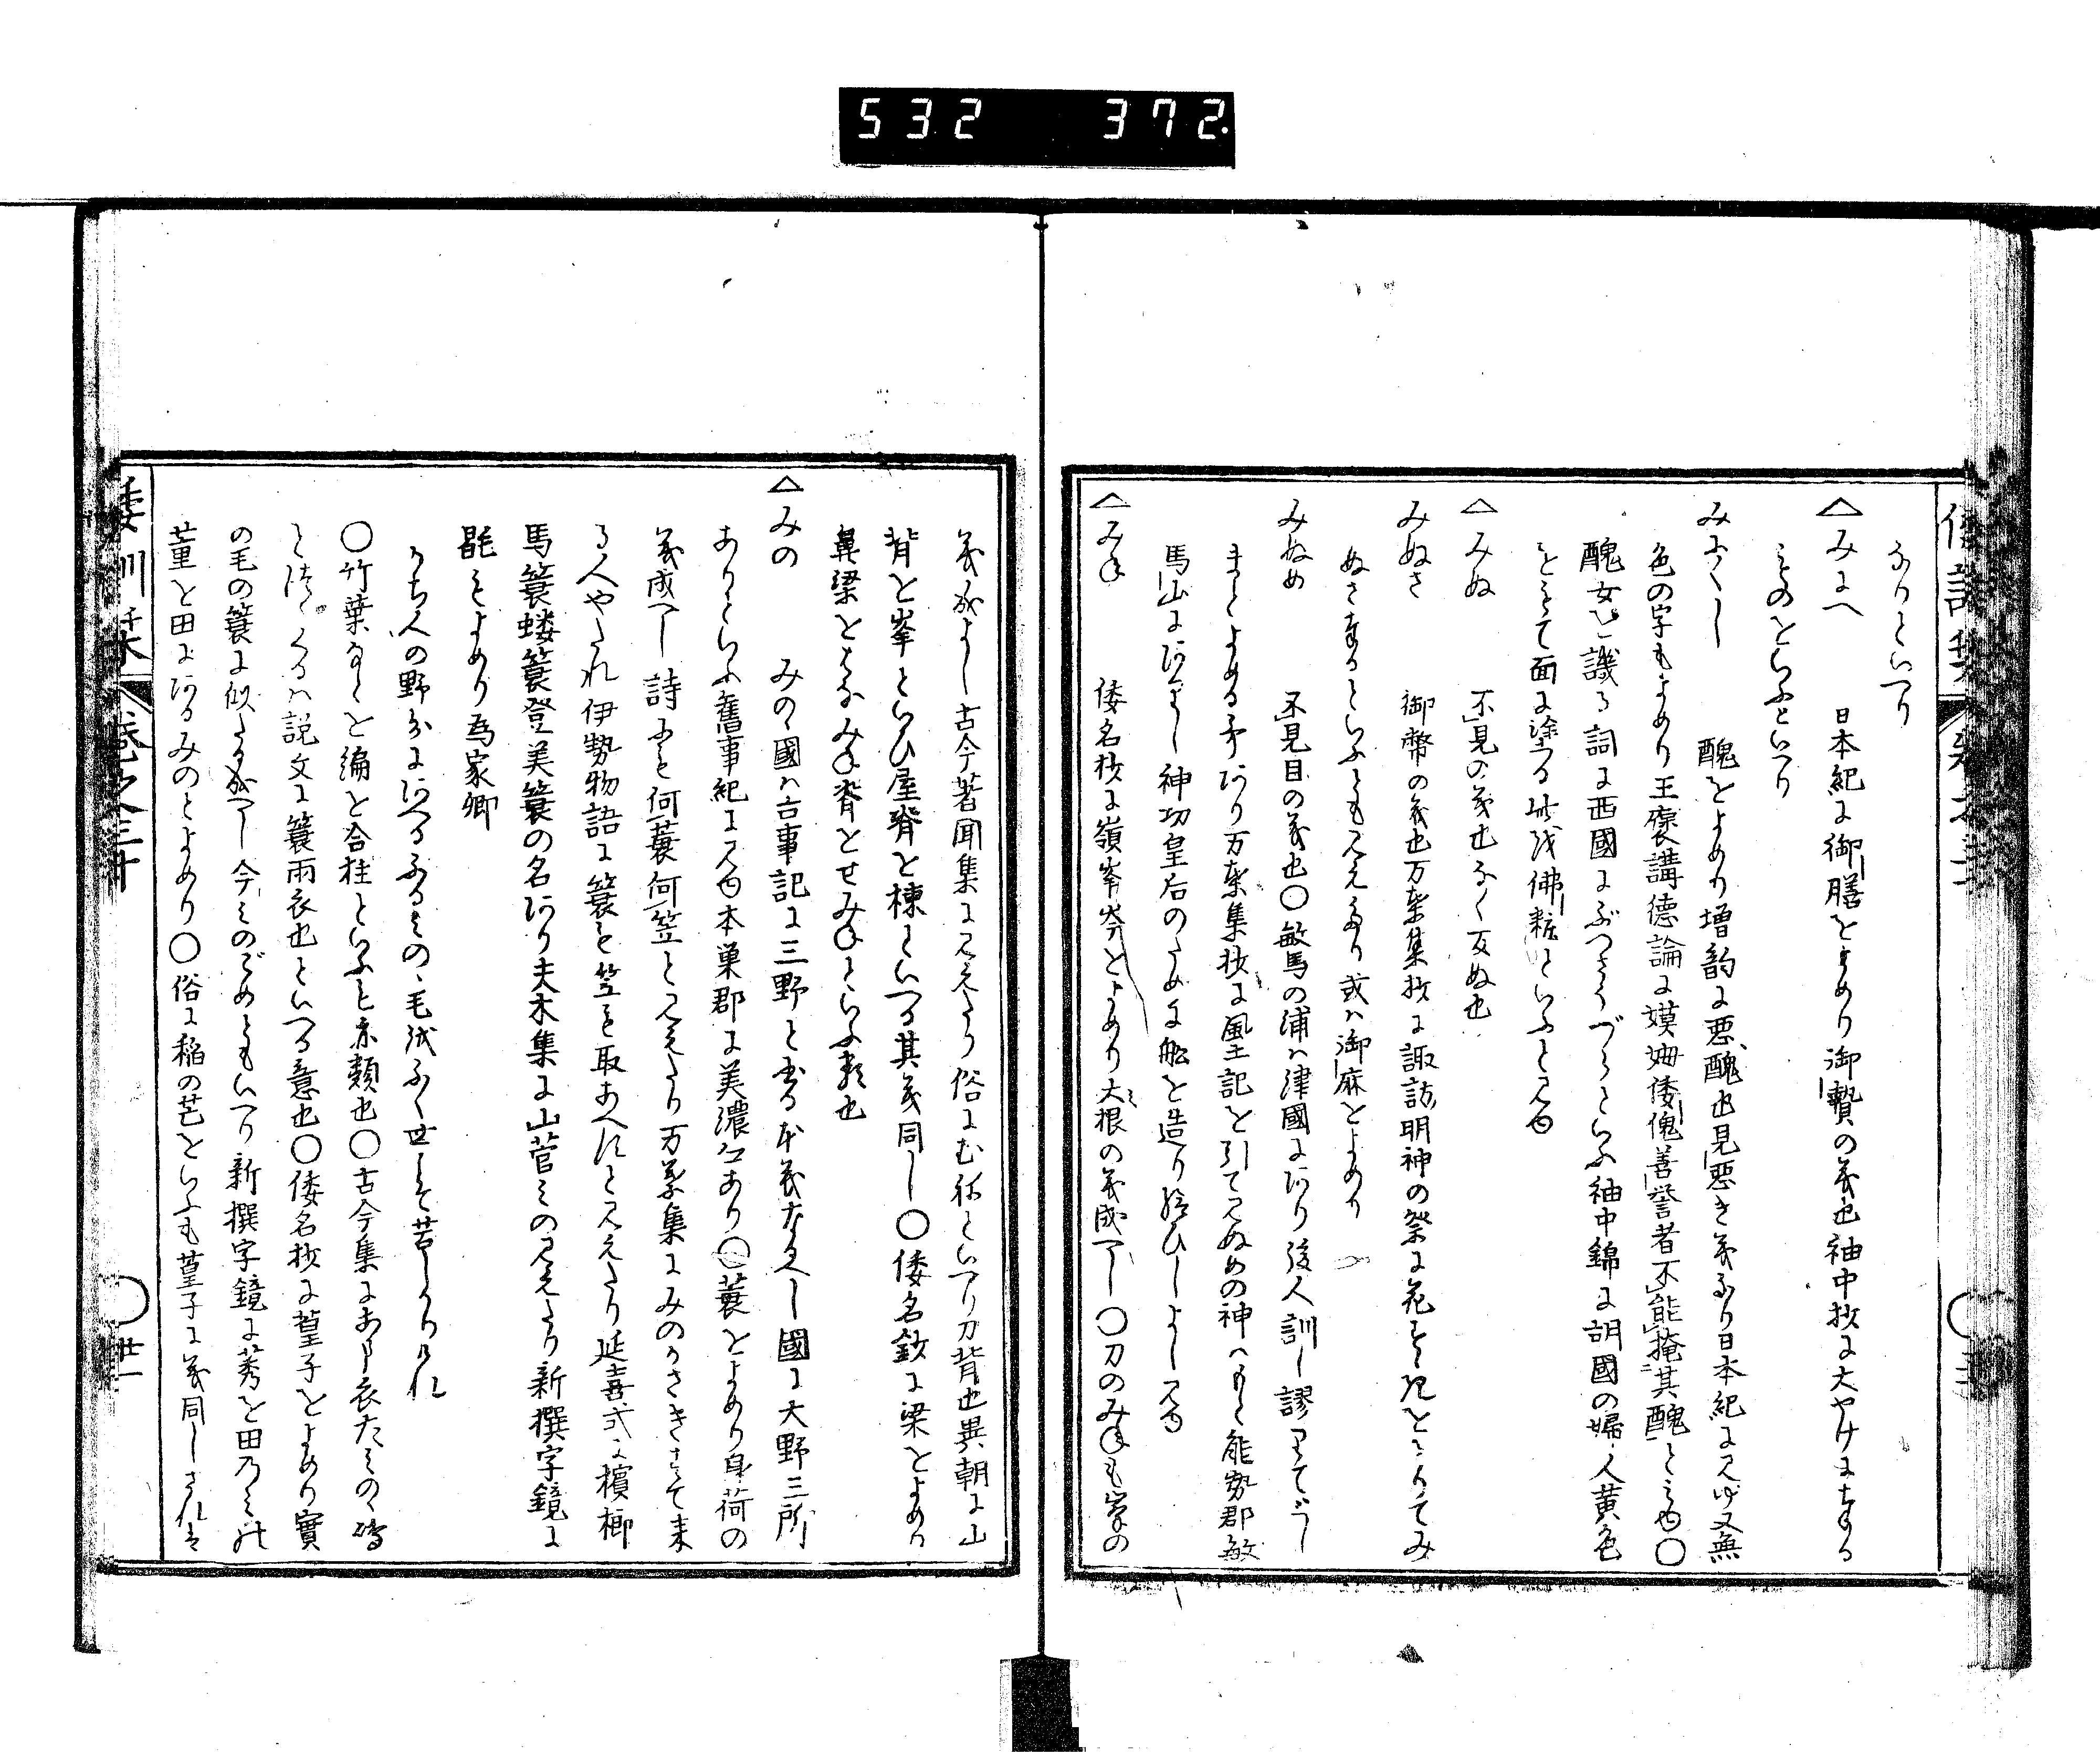 532 372
なりといへり
△みにへ 日本紀に御膳をよめり御贄の義也袖中抄に大やけに奉る
ものをいふといへり
みにくし 醜をよめり増韵に悪醜也見悪き義なり日本紀に見ゆ又無
色の字もよめり王褒講德論に嫫姆倭傀善誉者不能掩其醜とみゆ〇
醜女を譏る詞に西國にぶつさうづらといふ袖中錦に胡國の婦人黄色
をもて面に塗る此を佛粧といふと見ゆ
△みぬ 不見の義也なく反ぬ也
みぬさ 御幣の義也万葉集抄に諏訪明神の祭に花をも祝をとりてみ
ぬさ奉るといふとも見えたり或ハ御麻をよめり
みぬめ 不見目の義也〇敏馬の浦ハ津國にあり後人訓し謬りてどし
まとよめる事あり万葉集抄に風土記を引てみぬめの神ハもと能勢郡敏
馬山にあり神功皇后のために船を造り給ひしよし見ゆ
△みね 倭名抄に嶺峯岑をよめり大根の義成へし〇刀のみねも峯の
義成よし古今著聞集に見えたり俗にむねといへり刀背也異朝に山
背を峯といひ屋脊を棟といへる其義同し〇倭名鈔に梁をよめり
鼻梁をはなみね脊をせみねといふ類也
△みの みの國ハ古事記に三野と書る本義なるへし國に大野三所
ありといふ舊事紀に見ゆ本巣郡に美濃江あり〇蓑をよめり身荷の
義成へし詩にも何蓑何笠と見えたり万葉集にみのかさきすて来
る人やたれ伊勢物語に簑も笠も取あへすと見えたり延喜式に檳榔
馬簑螻簑登美簑の名あり夫木集に山菅みの見えたり新撰字鏡に
毦もよめり為家卿
かち人の野分にあへるふるみのゝ毛をふく世こそ苦しかりけれ
〇竹葉なとを編を合挂といふと亦類也〇古今集にあま衣たみのゝ嶋
とつゝくるハ説文に簑雨衣也といへる意也〇倭名抄に菫子をよめり實
の毛の簑に似たる成へし今みのごめともいへり新撰字鏡に莠を田乃みの
菫を田にあるみのとよめり〇俗に稲の芒をいふも菫子に義同しされは
倭訓栞 卷之三十 〇 廿一